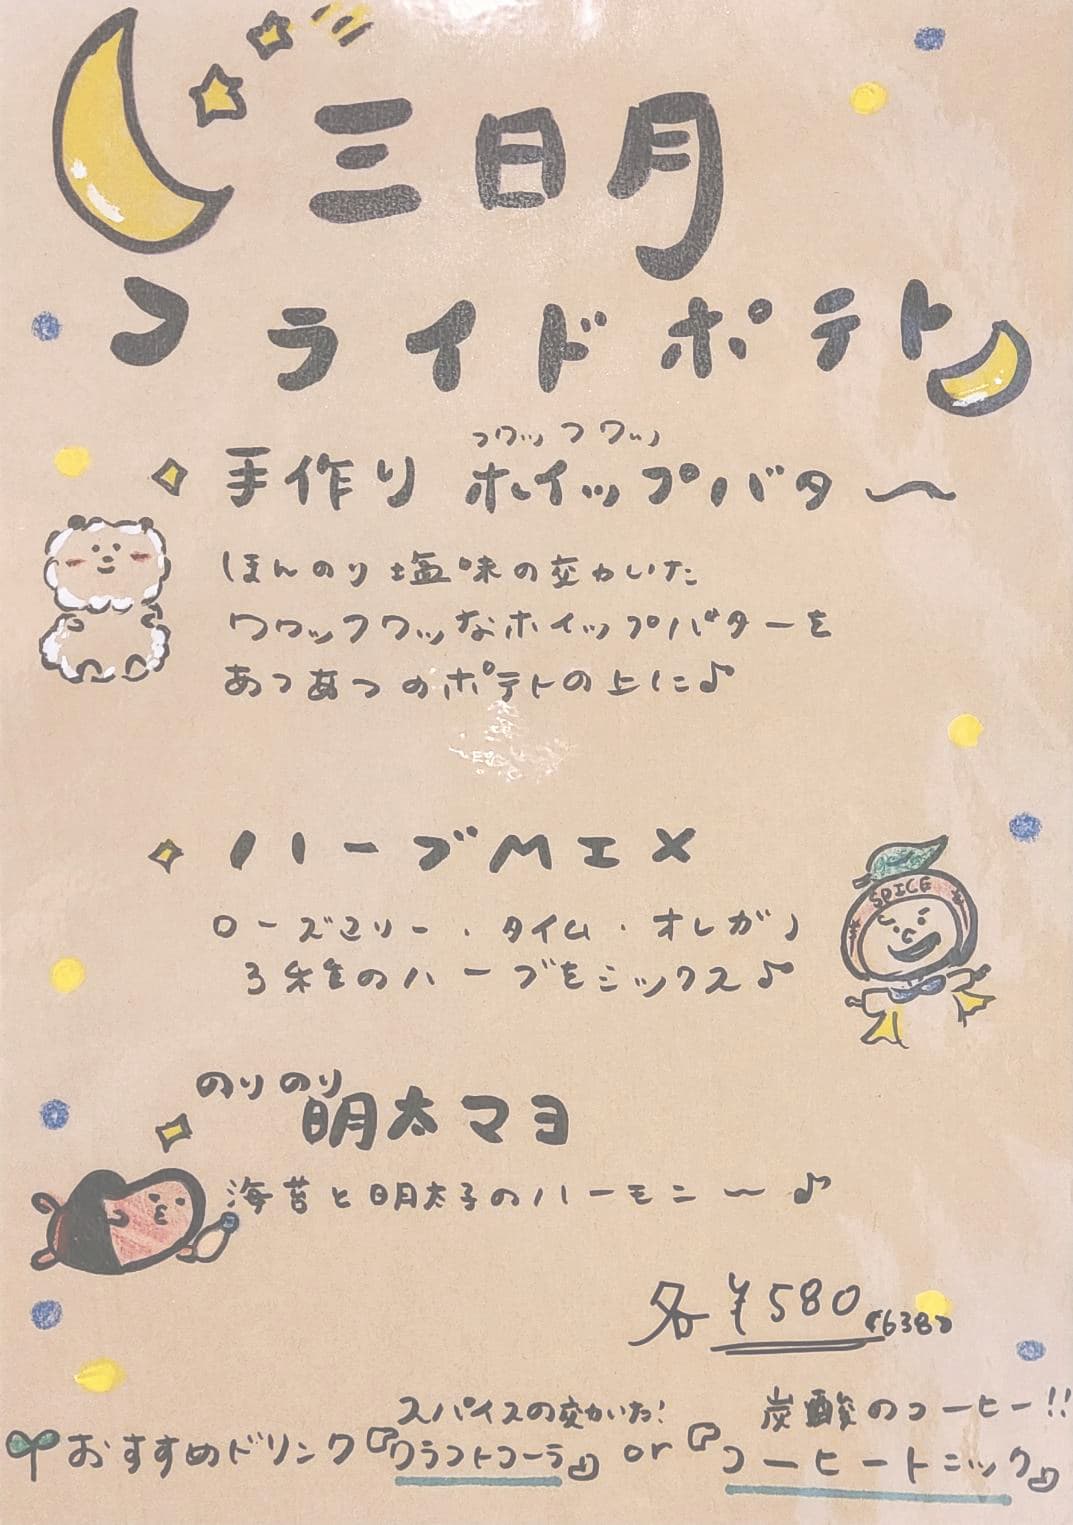 三日月
フライドポテト
フワッフワッ
手作り ホイップバタ〜
ほんのり塩味の効いた
フワッフワッなホイップバターを
あつあつのポテトの上に♪
ハーブMIX
SPICE
ローズマリー・タイム・オレガノ
3種のハーブをミックス♪
のりのり
明太マヨ
海苔と明太子のハーモニ〜♪
各¥580(638)
スパイスの効いた! 炭酸のコーヒー!!
おすすめドリンク『クラフトコーラ』or『コーヒートニック』